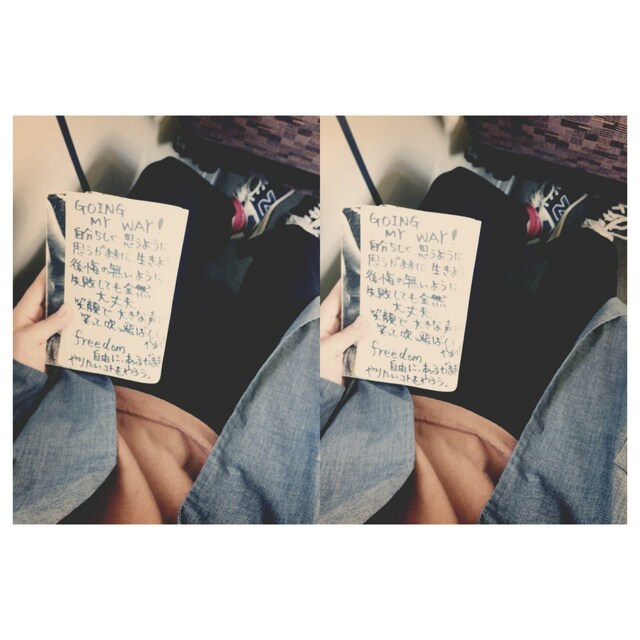 GOING
MY WAY!
自分らしく 思うように
思うがままに 生きよ
後悔の無いように
失敗しても全然
大丈夫
笑顔で 大きな声で
笑って吹っ飛ばし
やがれ
freedom
自由に、あるがまま
やりたいコトをやろう。
N
GOING
MY WAY!
自分らしく 思うように
思うがままに 生きよ
後悔の無いように
失敗しても全然
大丈夫
笑顔で 大きな声
笑って吹っ飛ばし
freedom
自由に、あるがまま
やりたいコトをやろう。
N